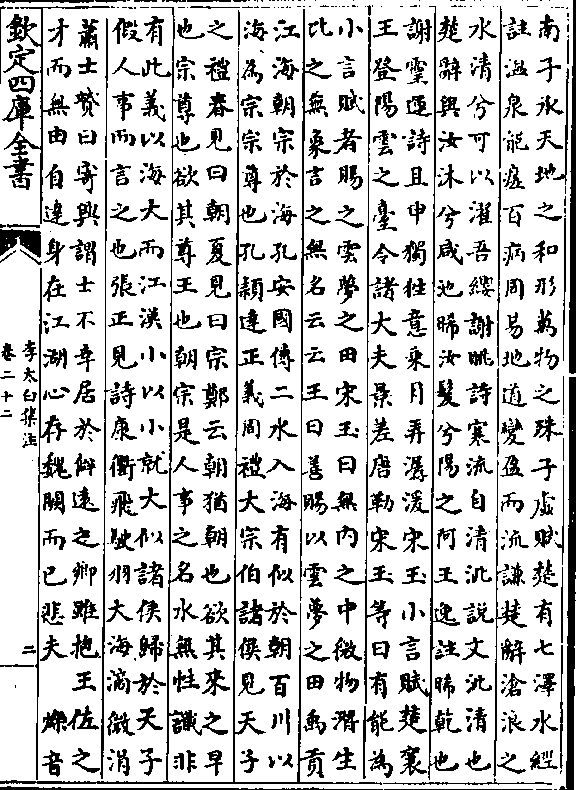 南子水天地之和形萬物之殊子虛賦楚有七澤水經
註溫泉能瘥百病周易地道變盈而流謙楚辭滄浪之
水清兮可以濯吾纓謝眺詩寒流自清泚說文泚清也
楚辭與汝沐兮咸池晞汝髮兮陽之阿王逸註晞乾也
謝靈運詩且申獨往意乘月弄潺湲宋玉小言賦楚襄
王登陽雲之臺令諸大夫景差唐勒宋玉等曰有能為
小言賦者賜之雲夢之田宋玉曰無內之中微物潛生
比之無象言之無名云云王曰善賜以雲夢之田禹貢
江海朝宗於海孔安國傳二水入海有似於朝百川以
海為宗宗尊也孔穎達正義周禮大宗伯諸侯見天子
之禮春見曰朝夏見曰宗鄭云朝猶朝也欲其來之早
也宗尊也欲其尊王也朝宗是人事之名水無性識非
有此義以海大而江漢小以小就大似諸侯歸於天子
假人事而言之也張正見詩康衢飛駛羽大海滴微涓
蕭士贇曰寄興謂士不幸居於僻遠之鄉雖抱王佐之
才而無由自達身在江湖心存魏闕而已悲夫 爍音
欽定四庫全書
李太白集注
卷二十二
二